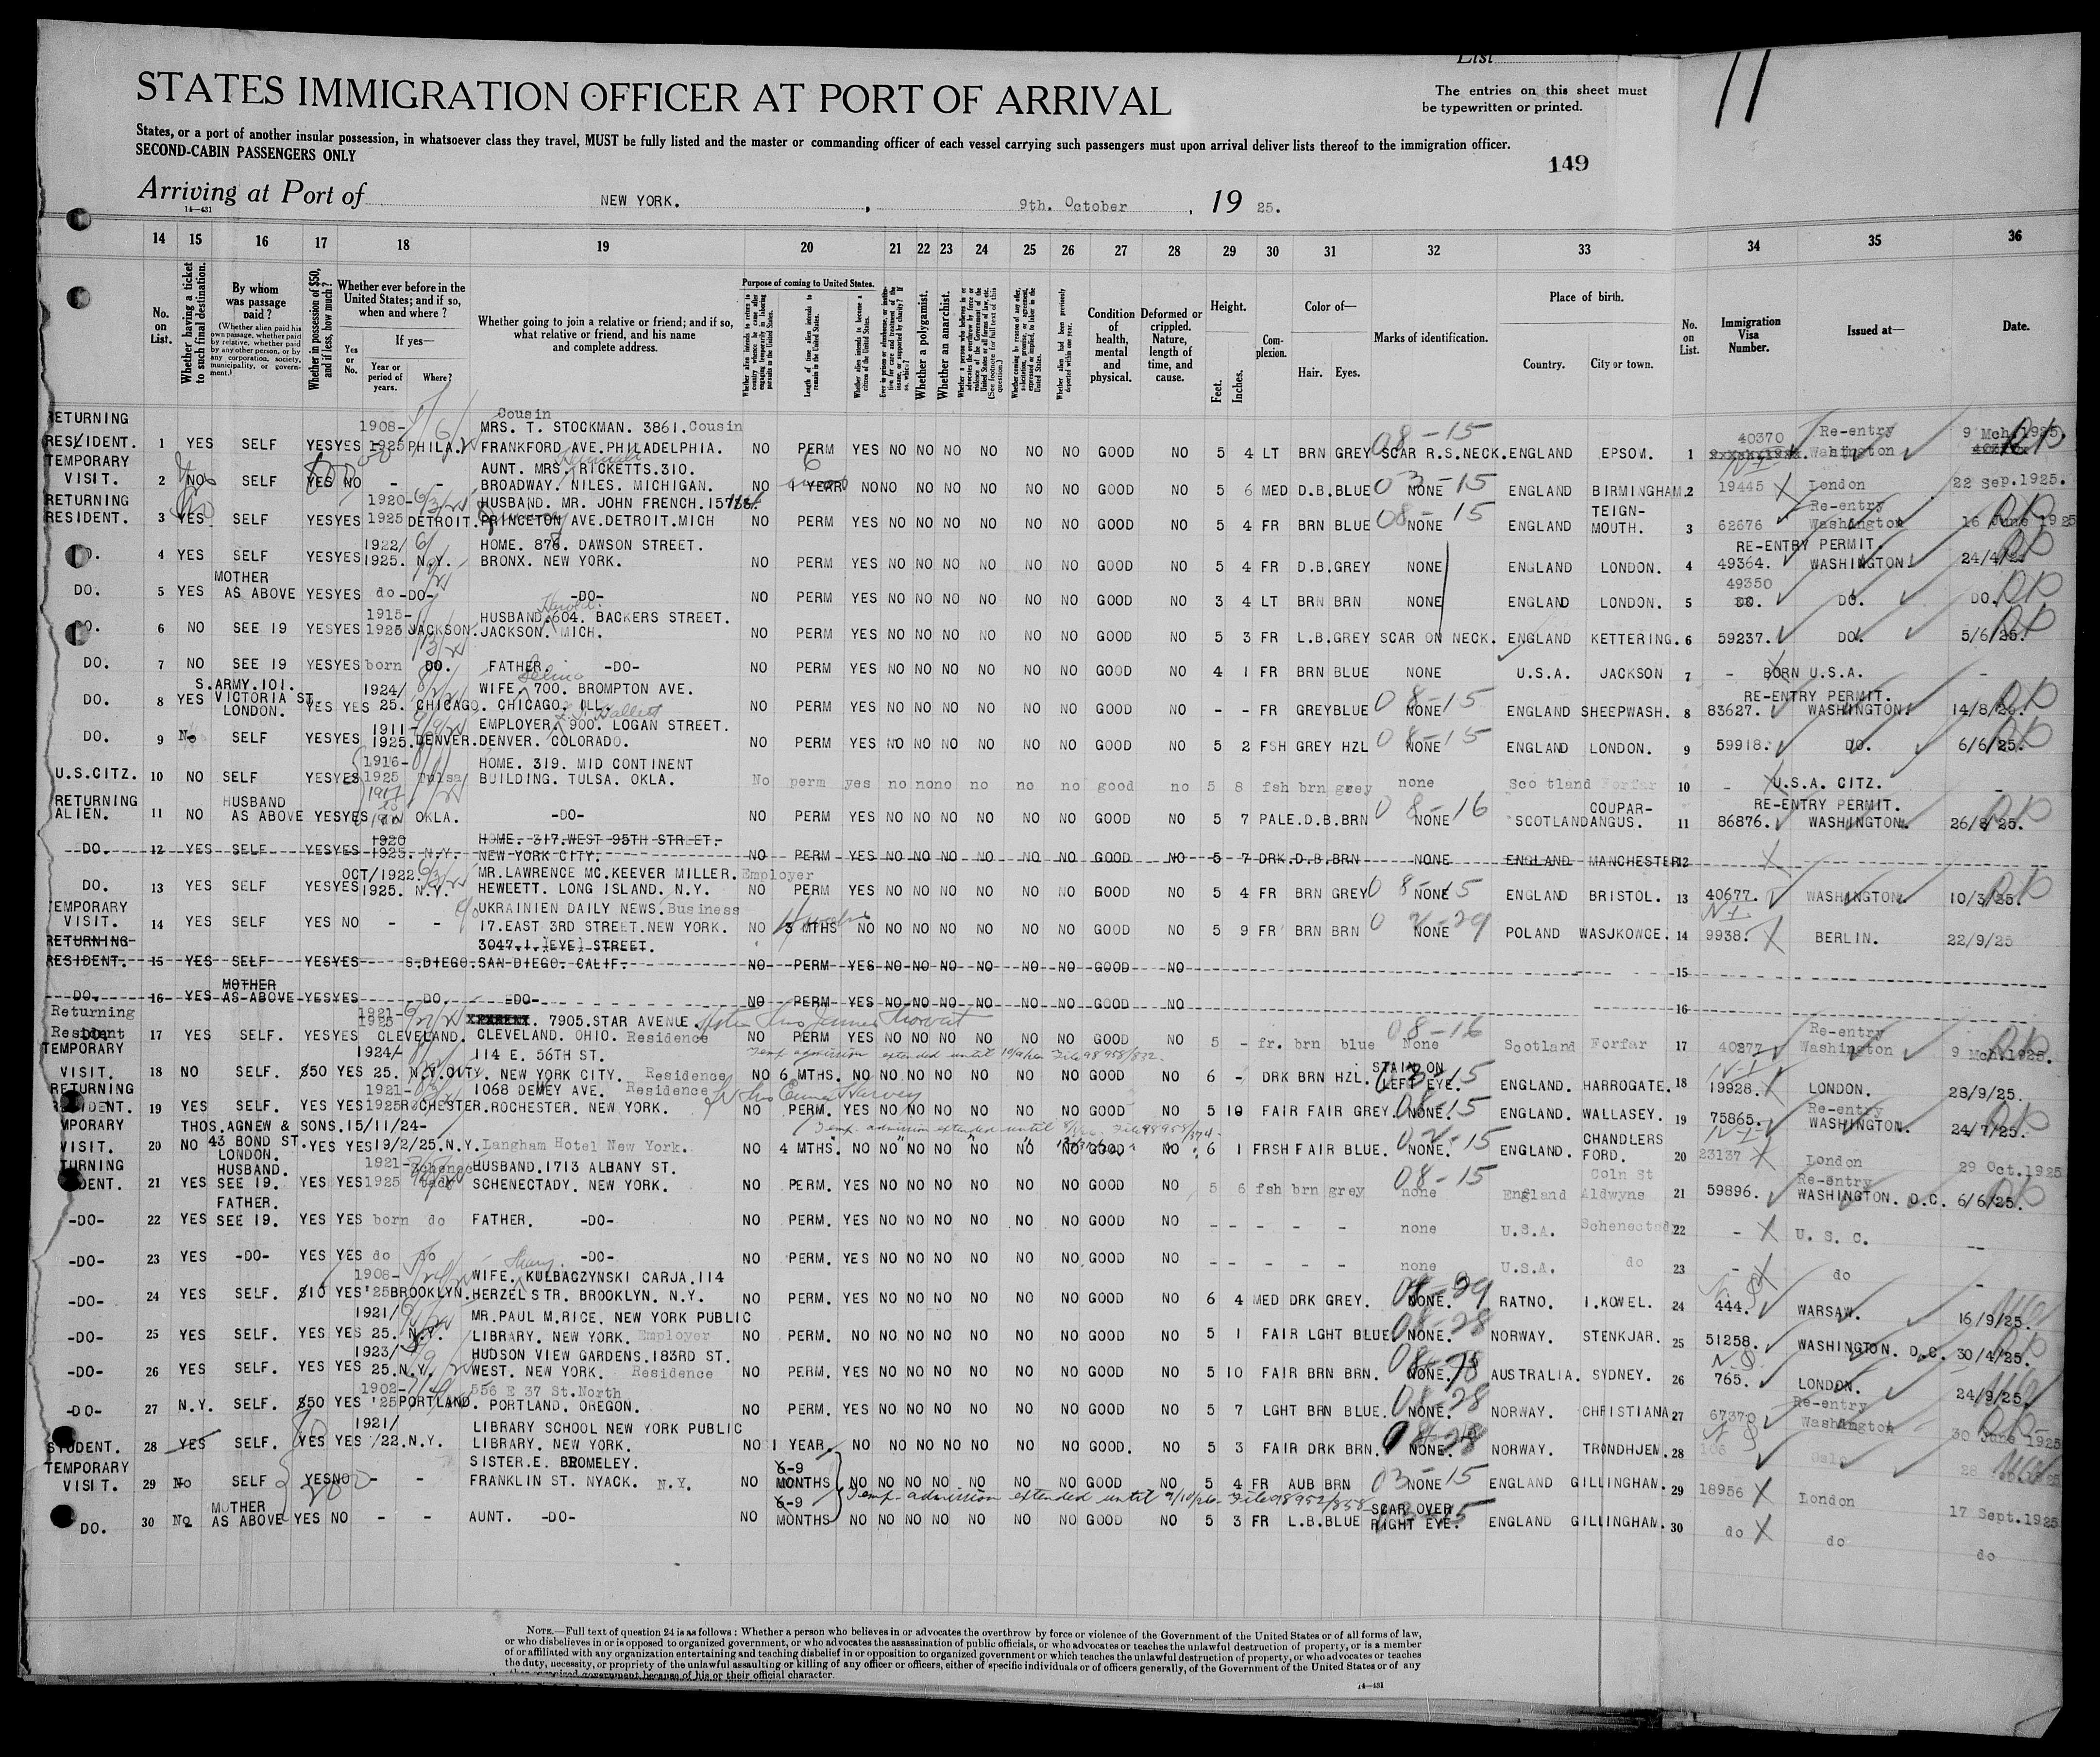 List
11
STATES IMMIGRATION OFFICER AT PORT OF ARRIVAL
The entries on this sheet must
be typewritten or printed.
States, or a port of another insular possession, in whatsoever class they travel, MUST be fully listed and the master or commanding officer of each vessel carrying such passengers must upon arrival deliver lists thereof to the immigration officer.
SECOND-CABIN PASSENGERS ONLY
149
Arriving at Port of NEW YORK. , 9th. October , 19 25.
14—431
14 15 16 17 18 19 20 21 22 23 24 25 26 27 28 29 30 31 32 33 34 35 36
No. on List.
Whether having a ticket to such final destination.
By whom was passage paid?
(Whether alien paid his own passage, whether paid by relative, whether paid by any other person, or by any corporation, society, municipality, or government.)
Whether in possession of $50, and if less, how much?
Whether ever before in the United States; and if so, when and where?
Yes or No.
If yes—
Year or period of years.
Where?
Whether going to join a relative or friend; and if so, what relative or friend, and his name and complete address.
Purpose of coming to United States.
Length of time alien intends to remain in the United States.
Whether alien intends to become a citizen of the United States.
Whether a polygamist.
Whether an anarchist.
Condition of health, mental and physical.
Deformed or crippled. Nature, length of time, and cause.
Height.
Feet. Inches.
Complexion.
Color of—
Hair. Eyes.
Marks of identification.
Place of birth.
Country. City or town.
No. on List.
Immigration Visa Number.
Issued at—
Date.
RETURNING 1908- Cousin MRS. T. STOCKMAN. 3861. Cousin 40370 Re-entry 9 Mch.1925.
RESIDENT. 1 YES SELF YES YES 1925 PHILA. FRANKFORD AVE. PHILADELPHIA. NO PERM YES NO NO NO NO NO NO GOOD NO 5 4 LT BRN GREY SCAR R.S.NECK. ENGLAND EPSOM. 1 Washington
08-15
TEMPORARY AUNT. MRS. RICKETTS.310. 6
VISIT. 2 NO SELF YES NO - - BROADWAY. NILES. MICHIGAN. NO 1 YEAR NO NO NO NO NO NO NO GOOD NO 5 6 MED D.B. BLUE NONE ENGLAND BIRMINGHAM. 2 19445 London 22 Sep.1925.
03-15
RETURNING 1920- HUSBAND. MR. JOHN FRENCH. TEIGN- Re-entry
RESIDENT. 3 YES SELF YES YES 1925 DETROIT. PRINCETON AVE.DETROIT.MICH NO PERM YES NO NO NO NO NO NO GOOD NO 5 4 FR BRN BLUE NONE ENGLAND MOUTH. 3 62676 Washington 16 June 1925
08-15
1922/ HOME. 878. DAWSON STREET. RE-ENTRY PERMIT.
DO. 4 YES SELF YES YES 1925. N.Y. BRONX. NEW YORK. NO PERM YES NO NO NO NO NO NO GOOD NO 5 4 FR D.B. GREY NONE ENGLAND LONDON. 4 49364. WASHINGTON. 24/4/25
MOTHER 49350
DO. 5 YES AS ABOVE YES YES do -DO- -DO- NO PERM YES NO NO NO NO NO NO GOOD NO 3 4 LT BRN BRN NONE ENGLAND LONDON. 5 DO. DO. DO.
1915- HUSBAND. Harold. 604. BACKERS STREET.
DO. 6 NO SEE 19 YES YES 1925 JACKSON. JACKSON. MICH. NO PERM YES NO NO NO NO NO NO GOOD NO 5 3 FR L.B. GREY SCAR ON NECK. ENGLAND KETTERING. 6 59237. DO. 5/6/25.
DO. 7 NO SEE 19 YES YES born DO. FATHER. -DO- NO PERM YES NO NO NO NO NO NO GOOD NO 4 1 FR BRN BLUE NONE U.S.A. JACKSON 7 - BORN U.S.A. -
S.ARMY.101. 1924/ WIFE. Selina 700. BROMPTON AVE. RE-ENTRY PERMIT.
DO. 8 YES VICTORIA ST. LONDON. YES YES 25. CHICAGO. CHICAGO. ILL. NO PERM YES NO NO NO NO NO NO GOOD NO - - FR GREY BLUE NONE ENGLAND SHEEPWASH. 8 83627. WASHINGTON. 14/8/25.
08-15
1911- EMPLOYER. 900. LOGAN STREET.
DO. 9 No SELF YES YES 1925. DENVER. DENVER. COLORADO. NO PERM YES NO NO NO NO NO NO GOOD NO 5 2 FSH GREY HZL NONE ENGLAND LONDON. 9 59918. DO. 6/6/25.
08-15
1916- HOME. 319. MID CONTINENT
U.S.CITZ. 10 NO SELF YES YES 1925 Tulsa BUILDING. TULSA. OKLA. No perm yes no no no no no no good no 5 8 fsh brn grey none Scotland Forfar 10 - U.S.A. CITZ. -
RETURNING HUSBAND COUPAR- RE-ENTRY PERMIT.
ALIEN. 11 NO AS ABOVE YES YES OKLA. -DO- NO PERM YES NO NO NO NO NO NO GOOD NO 5 7 PALE. D.B. BRN NONE SCOTLAND ANGUS. 11 86876. WASHINGTON. 26/8/25.
08-16
1920 HOME. 317.WEST 95TH STREET.
DO. 12 YES SELF YES YES 1925. N.Y. NEW YORK CITY. NO PERM YES NO NO NO NO NO NO GOOD NO 5 7 DRK. D.B. BRN NONE ENGLAND MANCHESTER 12
OCT/1922. MR.LAWRENCE MC.KEEVER MILLER. Employer
DO. 13 YES SELF YES YES 1925. N.Y. HEWLETT. LONG ISLAND. N.Y. NO PERM YES NO NO NO NO NO NO GOOD NO 5 4 FR BRN GREY NONE ENGLAND BRISTOL. 13 40677. WASHINGTON. 10/3/25.
08-15
TEMPORARY c/o UKRAINIEN DAILY NEWS. Business
VISIT. 14 YES SELF YES NO - - 17.EAST 3RD STREET.NEW YORK. NO 3 MTHS NO NO NO NO NO NO NO GOOD NO 5 9 FR BRN BRN NONE POLAND WASJKOWCE. 14 9938. BERLIN. 22/9/25
RETURNING 3047.1.]EYE] STREET.
RESIDENT. 15 YES SELF YES YES S.DIEGO. SAN DIEGO. CALIF. NO PERM YES NO NO NO NO NO NO GOOD NO 15
MOTHER
DO. 16 YES AS ABOVE YES YES DO. -DO- NO PERM YES NO NO NO NO NO NO GOOD NO 16
Returning 1921- 7905.STAR AVENUE. Re-entry
Resident 17 YES SELF. YES YES 1925 CLEVELAND. CLEVELAND. OHIO. Residence NO PERM YES NO NO NO NO NO NO GOOD NO 5 - fr. brn blue None Scotland Forfar 17 40277 Washington 9 Mch.1925.
08-16
TEMPORARY 1924/- 114 E. 56TH ST. Temp. admission extended until STAIN ON
VISIT. 18 NO SELF. $50 YES 25. N.Y.CITY. NEW YORK CITY. Residence NO 6 MTHS. NO NO NO NO NO NO NO GOOD NO 6 - DRK BRN HZL. LEFT EYE. ENGLAND. HARROGATE. 18 19928. LONDON. 28/9/25.
RETURNING 1921- 1068 DEWEY AVE. Residence Re-entry
RESIDENT. 19 YES SELF. YES YES 1925 ROCHESTER. ROCHESTER. NEW YORK. NO PERM. YES NO NO NO NO NO NO GOOD NO 5 10 FAIR FAIR GREY. NONE. ENGLAND. WALLASEY. 19 75865. WASHINGTON. 24/7/25.
08-15
MPORARY THOS.AGNEW & SONS.15/11/24- Temp. admission extended until CHANDLERS
VISIT. 20 NO 43 BOND ST. LONDON. YES YES 19/2/25.N.Y. Langham Hotel New York. NO 4 MTHS. NO NO NO NO NO NO NO GOOD NO 6 1 FRSH FAIR BLUE. NONE. ENGLAND. FORD. 20 23137 London 29 Oct.1925
TURNING HUSBAND. 1921- HUSBAND.1713 ALBANY ST. Coln St Re-entry
DENT. 21 YES SEE 19. YES YES 1925 SCHENECTADY. NEW YORK. NO PERM. YES NO NO NO NO NO NO GOOD NO 5 6 fsh brn grey none England Aldwyns 21 59896. WASHINGTON. D.C. 6/6/25.
08-15
FATHER.
-DO- 22 YES SEE 19. YES YES born do FATHER. -DO- NO PERM. YES NO NO NO NO NO NO GOOD NO - - - - - none U.S.A. Schenectady 22 - U. S. C. --
-DO- 23 YES -DO- YES YES do do -DO- NO PERM. YES NO NO NO NO NO NO GOOD NO - - - - - none U.S.A. do 23 - do -
1908- WIFE. KULBACZYNSKI CARJA.114
-DO- 24 YES SELF. $10 YES '25 BROOKLYN. HERZEL STR. BROOKLYN. N.Y. NO PERM. YES NO NO NO NO NO NO GOOD NO 6 4 MED DRK GREY. NONE. RATNO. I.KOWEL. 24 444. WARSAW. 16/9/25.
1921/ MR.PAUL M.RICE. NEW YORK PUBLIC
-DO- 25 YES SELF. YES YES 25. N.Y. LIBRARY. NEW YORK. Employer NO PERM. NO NO NO NO NO NO NO GOOD NO 5 1 FAIR LGHT BLUE. NONE. NORWAY. STENKJAR. 25 51258. WASHINGTON. D.C. 30/4/25.
08-28
1923/ HUDSON VIEW GARDENS.183RD ST.
-DO- 26 YES SELF. YES YES 25.N.Y. WEST. NEW YORK. Residence NO PERM. YES NO NO NO NO NO NO GOOD NO 5 10 FAIR BRN BRN. NONE. AUSTRALIA. SYDNEY. 26 765. LONDON. 24/9/25.
1902- 556 E 37 St.North Re-entry
-DO- 27 N.Y. SELF. $50 YES '25 PORTLAND. PORTLAND. OREGON. NO PERM. YES NO NO NO NO NO NO GOOD NO 5 7 LGHT BRN BLUE. NONE. NORWAY. CHRISTIANA 27 67370 Washington 30 June 1925
08-28
1921/ LIBRARY SCHOOL NEW YORK PUBLIC
STUDENT. 28 YES SELF. YES YES /22.N.Y. LIBRARY. NEW YORK. NO 1 YEAR. NO NO NO NO NO NO NO GOOD. NO 5 3 FAIR DRK BRN. NONE. NORWAY. TRONDHJEM. 28 Oslo
TEMPORARY SISTER.E. BROMELEY. 6-9
VISIT. 29 No SELF YES NO - - FRANKLIN ST. NYACK. N.Y. NO MONTHS NO NO NO NO NO NO NO GOOD NO 5 4 FR AUB BRN NONE ENGLAND GILLINGHAM. 29 18956 London 17 Sept.1925
03-15
MOTHER 6-9 Temp. admission extended until 9/10/26 File 98952/858 SCAR OVER
DO. 30 No AS ABOVE YES NO - - AUNT. -DO- NO MONTHS NO NO NO NO NO NO NO GOOD NO 5 3 FR L.B. BLUE RIGHT EYE. ENGLAND GILLINGHAM. 30 do do do
NOTE.—Full text of question 24 is as follows: Whether a person who believes in or advocates the overthrow by force or violence of the Government of the United States or of all forms of law,
or who disbelieves in or is opposed to organized government, or who advocates the assassination of public officials, or who advocates or teaches the unlawful destruction of property, or is a member
of or affiliated with any organization entertaining and teaching disbelief in or opposition to organized government or which teaches the unlawful destruction of property, or who advocates or teaches
the duty, necessity, or propriety of the unlawful assaulting or killing of any officer or officers, either of specific individuals or of officers generally, of the Government of the United States or of any
other organized government because of his or their official character.
14—431